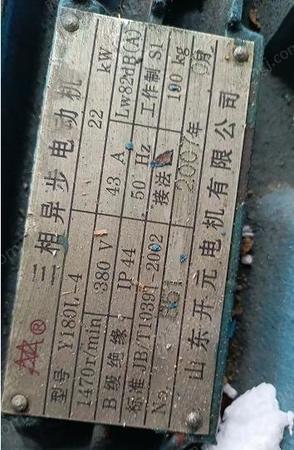 三相异步电动机
型号 Y180L-4 22 kW Lw82dB(A)
1470r/min 380 V 43 A 工作制 S1
B级绝缘 IP44 50 Hz 190 kg
标准JB/T10391-2002 接法
No. 2007年 月
山东开元电机有限公司